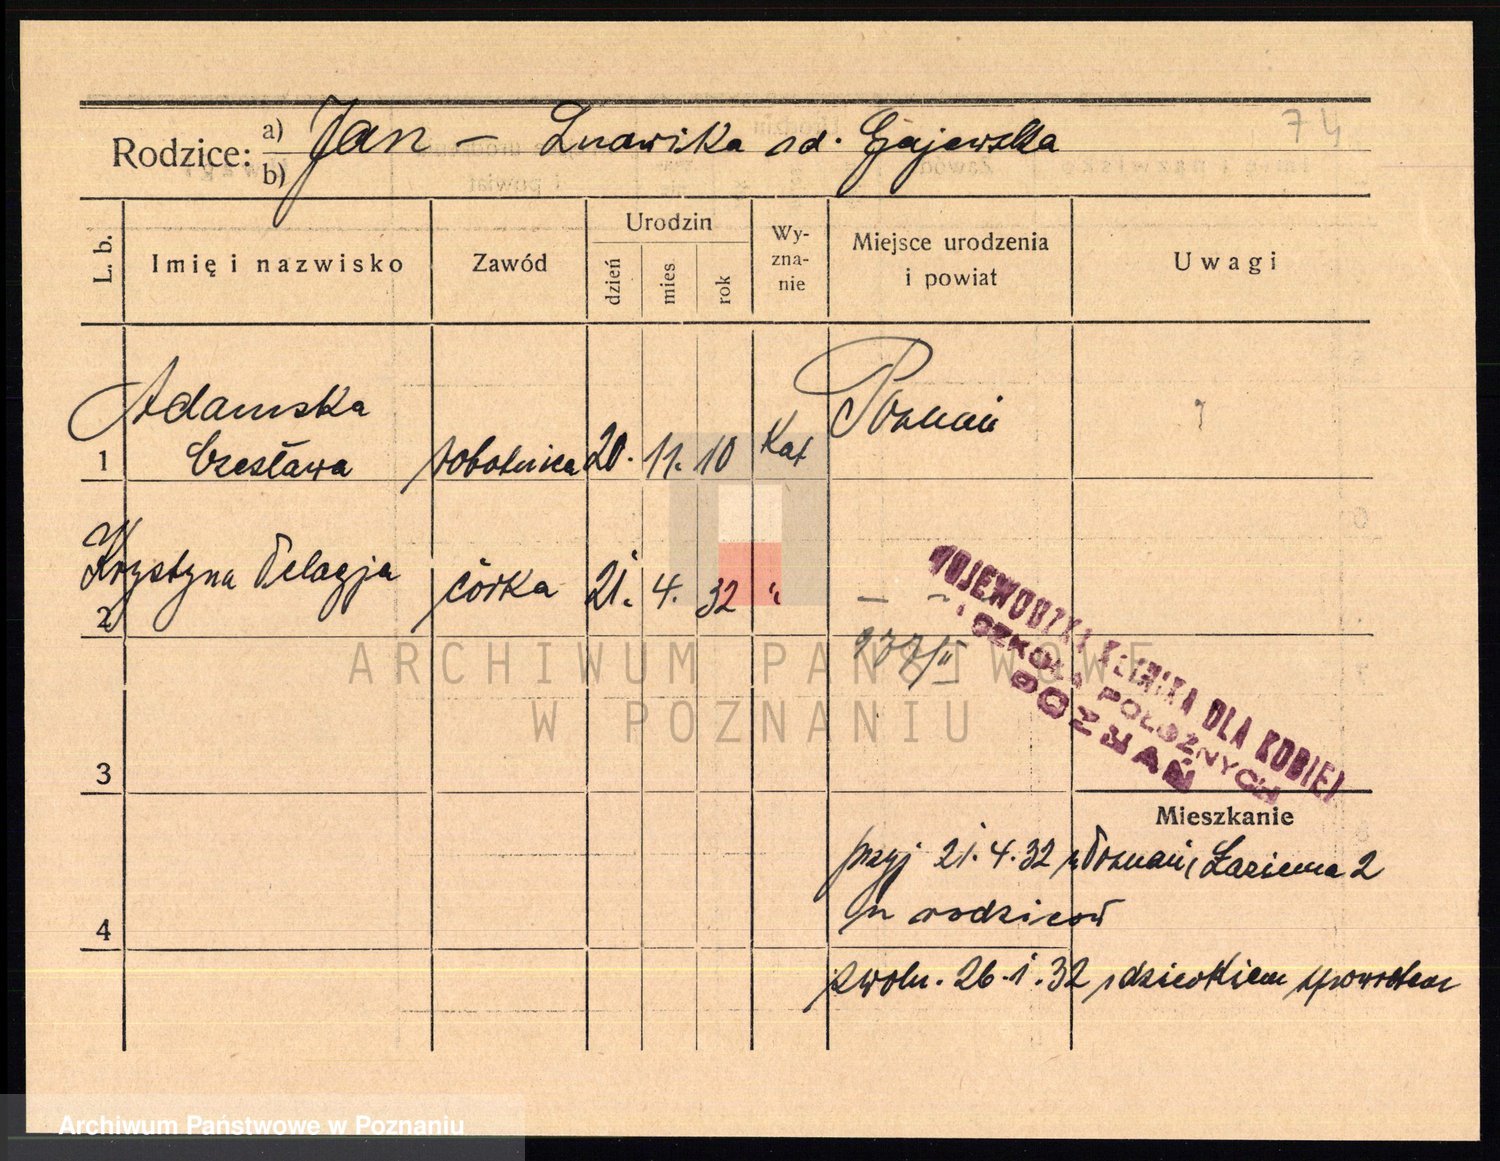 74
Rodzice: a) Jan – Ludwika zd. Gajewska
b)
L. b.
Imię i nazwisko
Zawód
Urodzin
dzień
mies
rok
Wy-
zna-
nie
Miejsce urodzenia
i powiat
Uwagi
Adamska
1 Czesława robotnica 20. 11. 10 Kat Poznań
2 Krystyna Pelagja córka 21. 4. 32 " — " —
977/II
WOJEWÓDZKA KLINIKA DLA KOBIET
i SZKOŁA POŁOŻNYCH
POZNAŃ
3
Mieszkanie
przyj 21.4.32 z Poznań, Łazienna 2
4 u rodziców
zwoln. 26.1.32 z dzieckiem spowrotem
ARCHIWUM PAŃSTWOWE
W POZNANIU
Archiwum Państwowe w Poznaniu